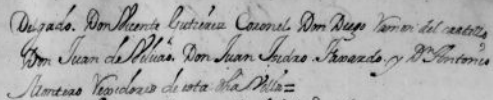 Delgado. Don Vicente Gutierez Coronel. Don Diego Ramon del castillo
Don Juan de Don Juan Isidro Faxardo. y Dn Antonio
Montero Rexidores de esta dha Villa=